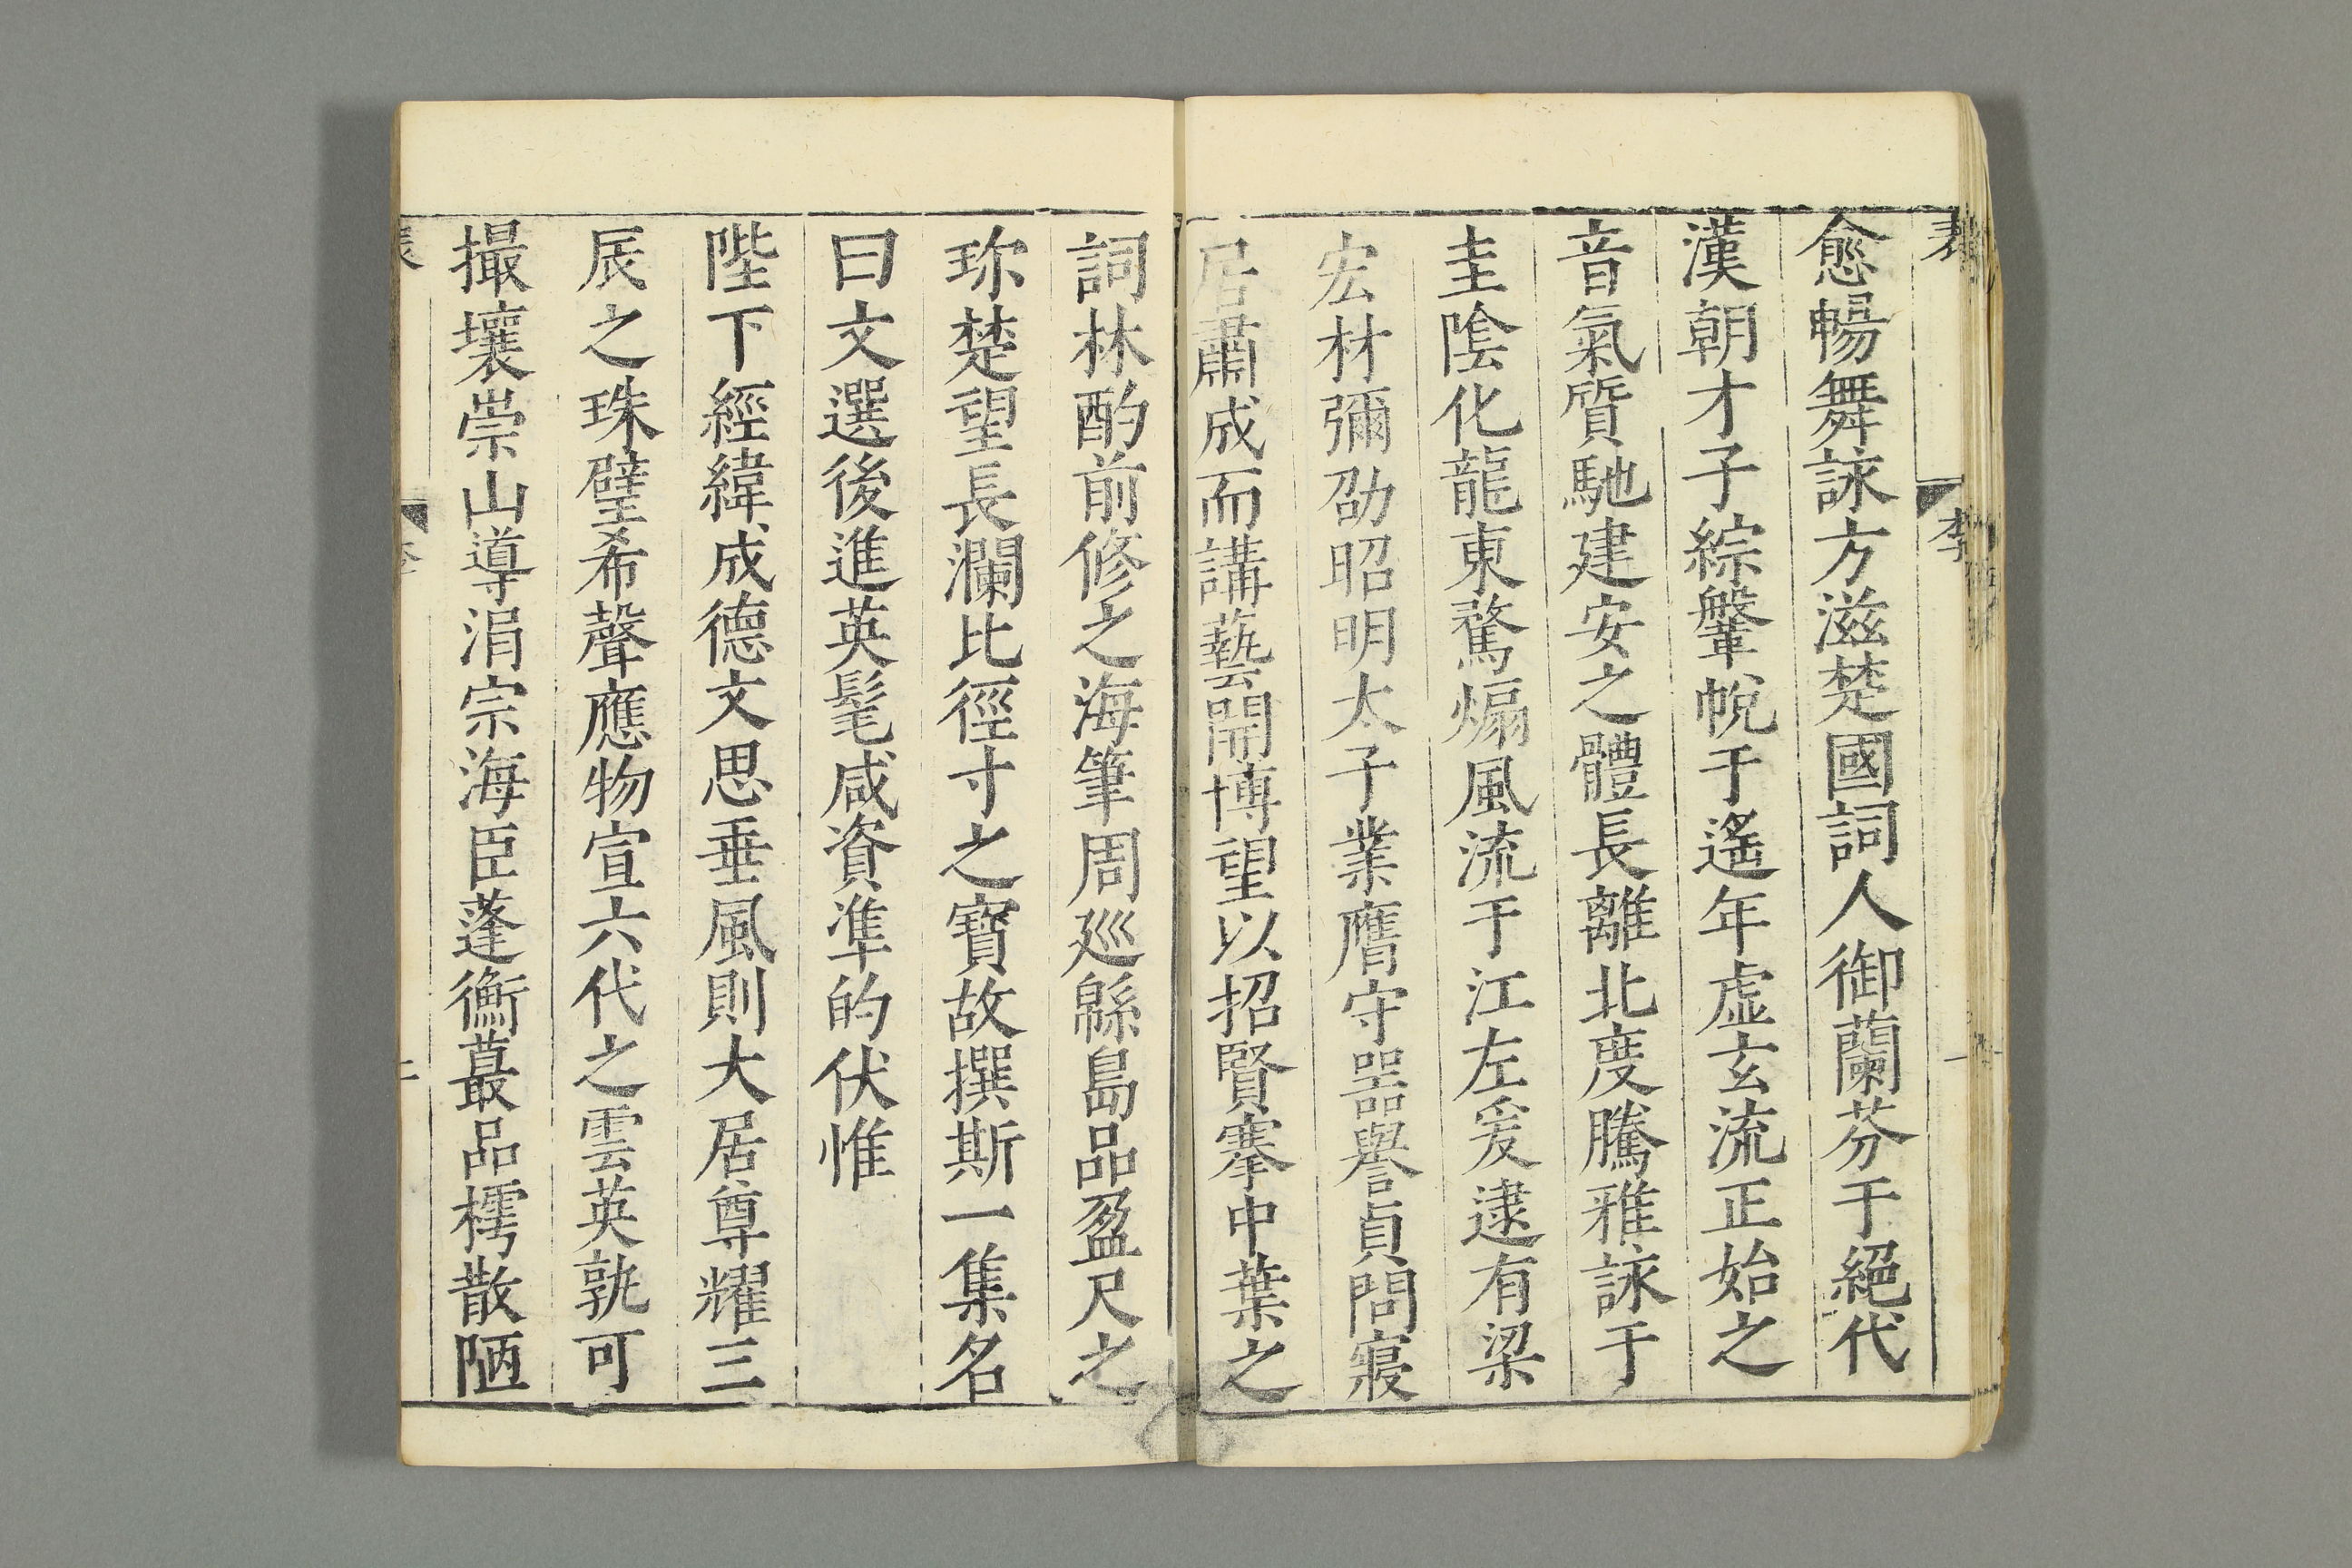 表
李
一
愈暢舞詠方滋楚國詞人御蘭芬于絕代
漢朝才子綜鞶帨于遙年虛玄流正始之
音氣質馳建安之體長離北度騰雅詠于
圭陰化龍東騖煽風流于江左爰逮有梁
宏材彌劭昭明太子業膺守器譽貞問寢
居肅成而講藝開博望以招賢搴中葉之
詞林酌前修之海筆周廵緜島品盈尺之
珎楚望長瀾比徑寸之寶故撰斯一集名
曰文選後進英髦咸資準的伏惟
陛下經緯成德文思垂風則大居尊耀三
辰之珠璧希聲應物宣六代之雲英孰可
撮壤崇山導涓宗海臣蓬衡蕞品樗散陋